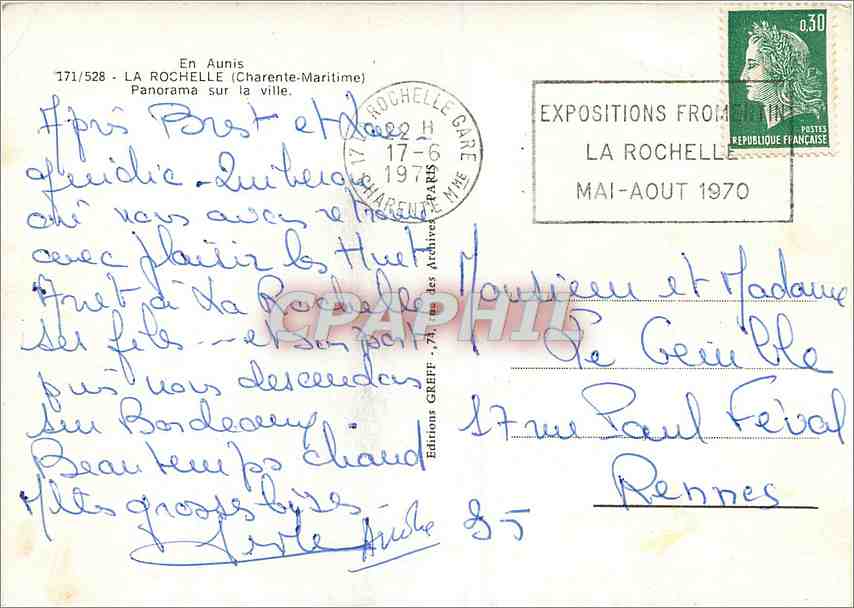 En Aunis
171/528 - LA ROCHELLE (Charente-Maritime)
Panorama sur la ville.
Après Brest et
Quiberon
où nous avons retrouvé
avec plaisir les Huet
à La Rochelle
ses files --- et son port
puis nous descendons
sur Bordeaux
Beau temps chaud
Mlts grosses bises
André
17 LA ROCHELLE GARE
22 H
17-6
1970
CHARENTE Mme
EXPOSITIONS FROMENTIN
LA ROCHELLE
MAI-AOUT 1970
0,30
POSTES
REPUBLIQUE FRANÇAISE
Editions GREFF -, 74, rue des Archives, PARIS
CPAPHIL
Monsieur et Madame
Le
17 rue Paul Féval
Rennes
35